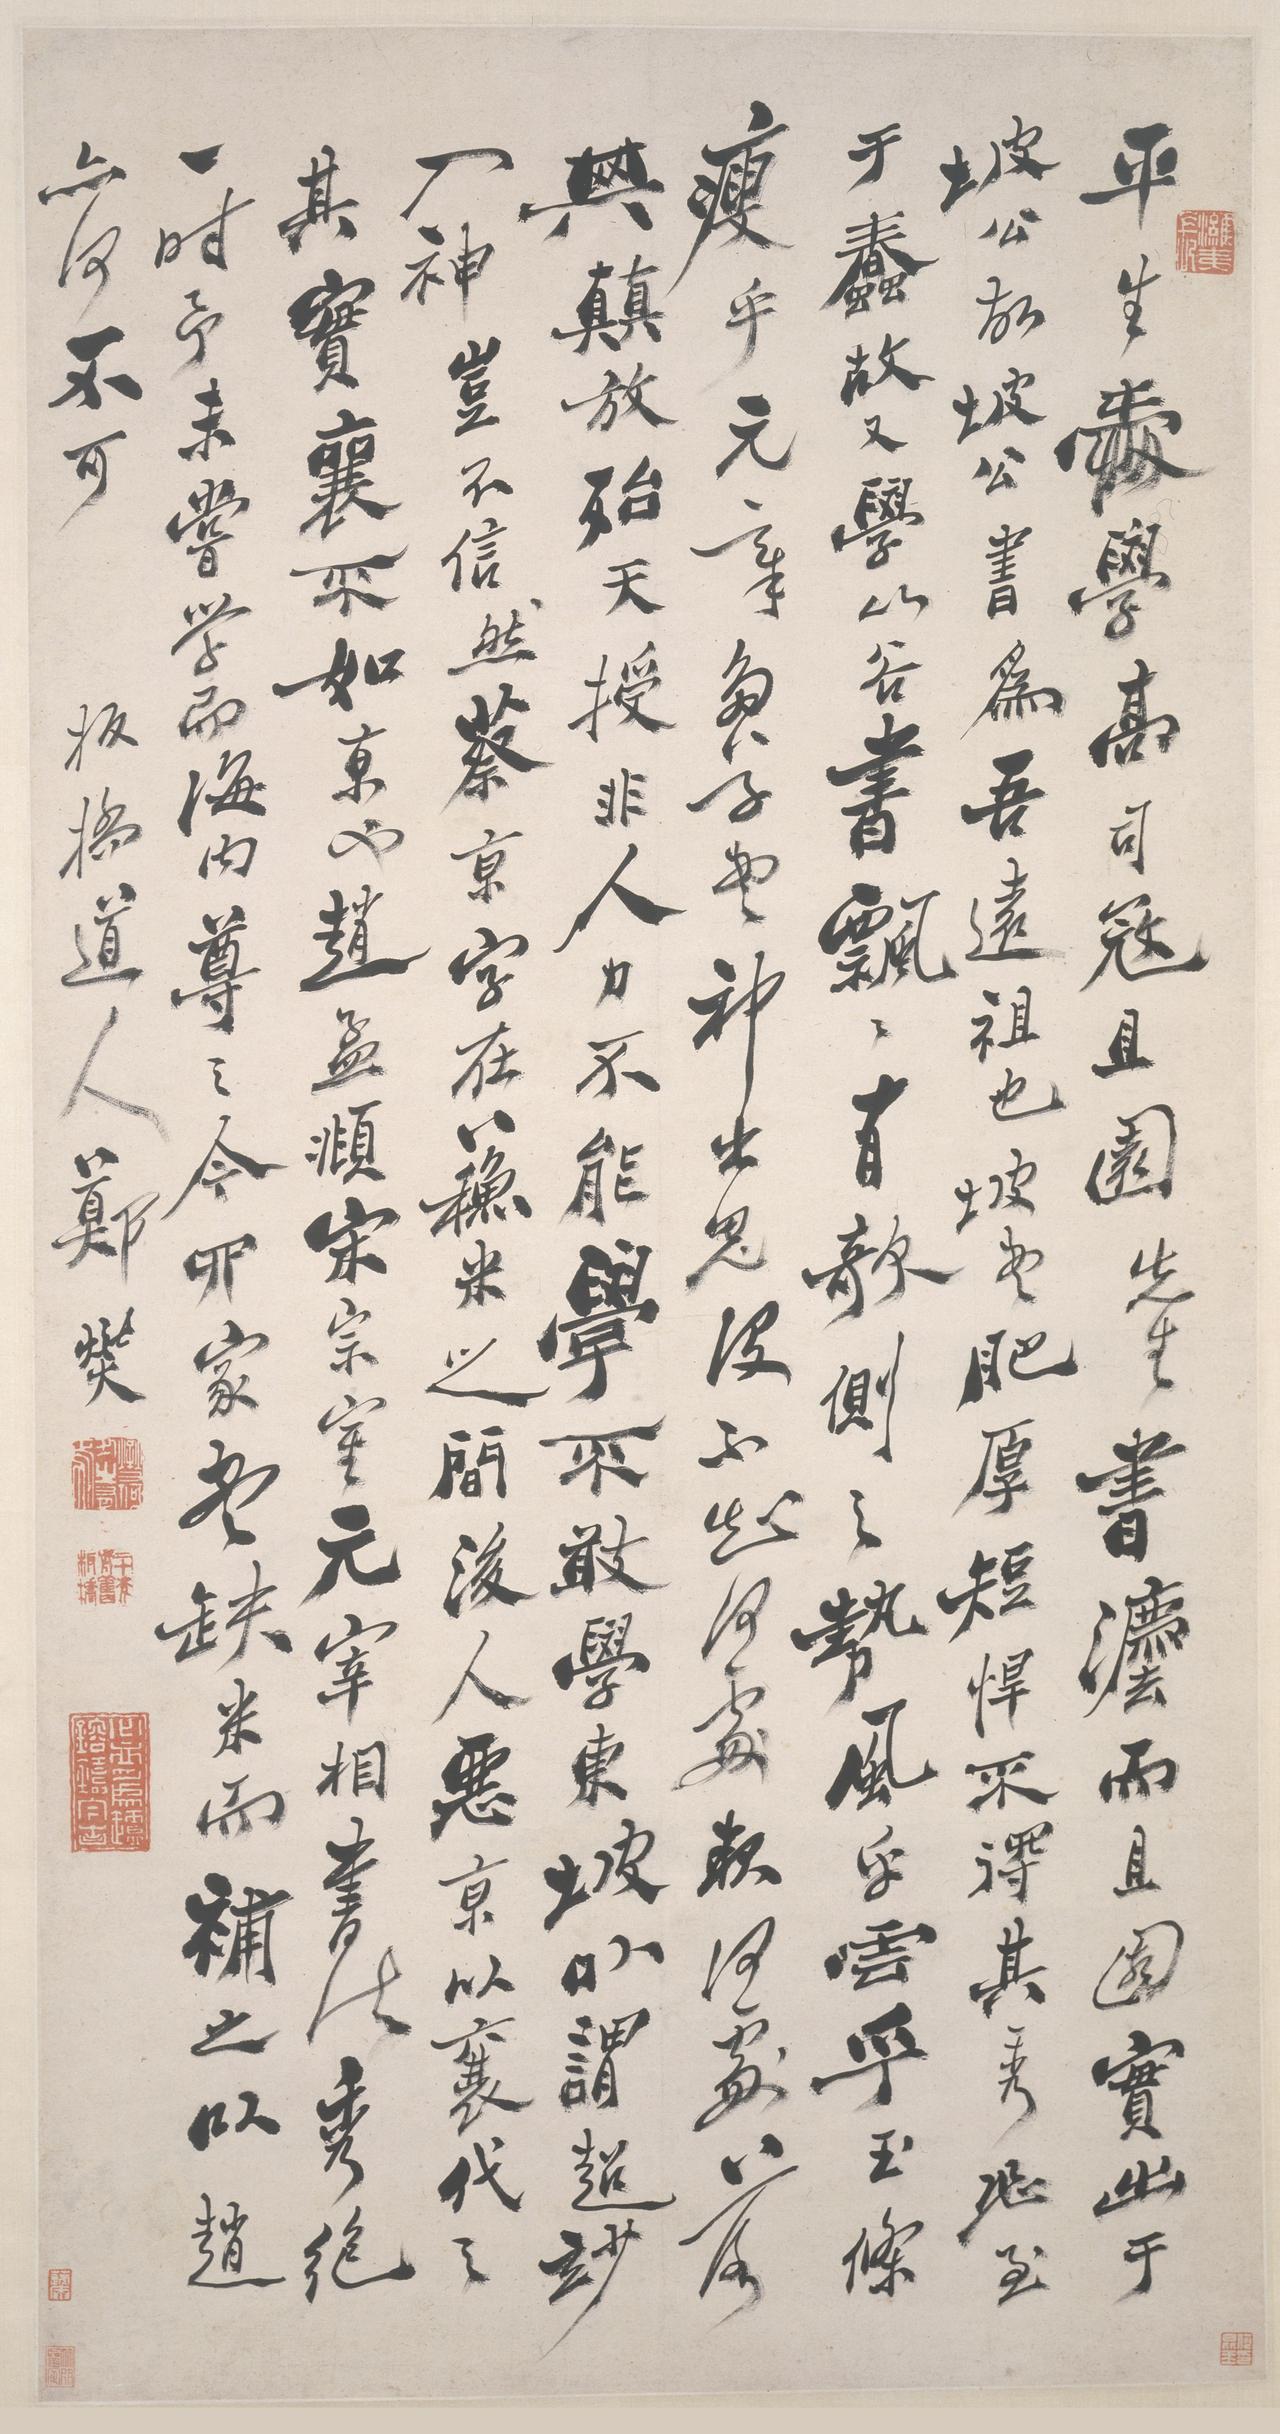 平生愛學高司寇且園先生書灋而且園實出于
坡公故坡公書爲吾遠祖也坡書肥厚短悍不得其秀恐至
于蠢故又學山谷書飄〻有欹側之勢風乎雲乎玉條
瘦乎元章多不書神出鬼沒不知何處起何處落
與顛放殆天授非人力不能學不敢學東坡以謂超妙
入神豈不信然蔡京字在蘇米之間後人惡京以襄代之
其實襄不如京也趙孟頫宋宗室元宰相書法秀絕
一時予未嘗学而海内尊之今四家書缺米而補之以趙
亦何不可
板橋道人鄭燮